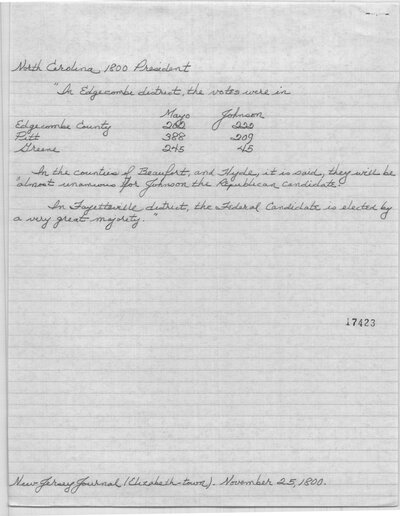 North Carolina, 1800 President
"In Edgecombe district, the votes were in
Mayo Johnson
Edgecombe County 220
Pitt 388 209
Greene 245 45
In the counties of Beaufort, and Hyde, it is said, they will be
"almost unanimous for Johnson the Republican candidate."
In Fayetteville district, the Federal Candidate is elected by
a very great majority."
17423
New Jersey Journal (Elizabeth-town). November 25, 1800.